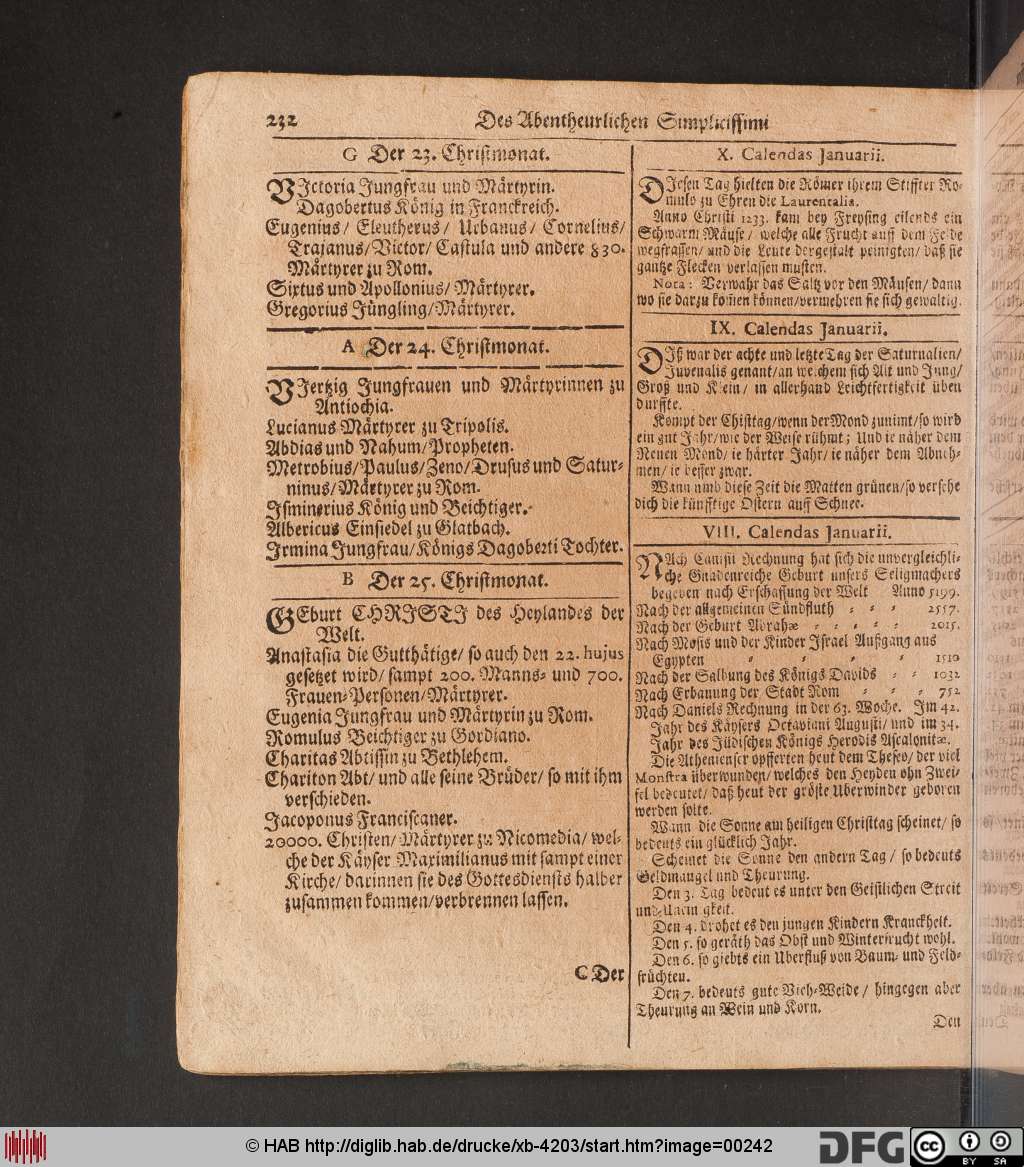 232
Des Abentheurlichen Simplicissimi
G Der 23. Christmonat.
VIctoria Jungfrau und Märtyrin.
Dagobertus König in Franckreich.
Eugenius/ Eleutherus/ Urbanus/ Cornelius/
Trajanus/Victor/ Castula und andere 830.
Märtyrer zu Rom.
Sixtus und Apollonius/ Märtyrer.
Gregorius Jüngling/Märtyrer.
A Der 24. Christmonat.
VIertzig Jungfrauen und Märtyrinnen zu
Antiochia.
Lucianus Märtyrer zu Tripolis.
Abdias und Nahum/Propheten.
Metrobius/Paulus/Zeno/Drusus und Satur-
ninus/Märtyrer zu Rom.
Isminerius König und Beichtiger.
Albericus Einsiedel zu Glatbach.
Irmina Jungfrau/Königs Dagoberti Tochter.
B Der 25. Christmonat.
GEburt CHRISTI des Heylandes der
Welt.
Anastasia die Gutthätige/ so auch den 22. hujus
gesetzet wird/ sampt 200. Manns- und 700.
Frauen-Personen/Märtyrer.
Eugenia Jungfrau und Märtyrin zu Rom.
Romulus Beichtiger zu Gordiano.
Charitas Abtissin zu Bethlehem.
Chariton Abt/ und alle seine Brüder/ so mit ihm
verschieden.
Jacoponus Franciscaner.
20000. Christen/Märtyrer zu Nicomedia/ wel-
che der Käyser Maximilianus mit sampt einer
Kirche/ darinnen sie des Gottesdiensts halber
zusammen kommen/verbrennen lassen.
C Der
X. Calendas Januarii.
DIesen Tag hielten die Römer ihrem Stiffter Ro-
mulo zu Ehren die Laurentalia.
Anno Christi 1233. kam bey Freysing eilends ein
Schwarm Mäuse/ welche alle Frucht auff dem Felde
wegfrassen/ und die Leute dergestalt peinigten/ daß sie
gantze Flecken verlassen musten.
Nota: Verwahr das Saltz vor den Mäusen/ dann
wo sie darzu kom̃en können/vermehren sie sich gewaltig.
IX. Calendas Januarii.
DIß war der achte und letzte Tag der Saturnalien/
Juvenalis genant/an welchem sich Alt und Jung/
Groß und Klein/ in allerhand Leichtfertigkeit üben
durffte.
Kompt der Chisttag/wenn der Mond zunimt/so wird
ein gut Jahr/wie der Weise rühmt; Und ie näher dem
Neuen Mond/ ie härter Jahr/ ie näher dem Abneh-
men/ ie besser zwar.
Wann umb diese Zeit die Matten grünen/so versehe
dich die künfftige Ostern auff Schnee.
VIII. Calendas Januarii.
NAch Canisii Rechnung hat sich die unvergleichli-
che Gnadenreiche Geburt unsers Seligmachers
begeben nach Erschaffung der Welt Anno 5199.
Nach der allgemeinen Sündfluth - - - 2557.
Nach der Geburt Abrahæ - - - - - 2015.
Nach Mosis und der Kinder Israel Außgang aus
Egypten - - - - - 1510
Nach der Salbung des Königs Davids - - 1032
Nach Erbauung der Stadt Rom - - - 752
Nach Daniels Rechnung in der 63. Woche. Im 42.
Jahr des Käysers Octaviani Augusti/ und im 34.
Jahr des Jüdischen Königs Herodis Ascalonitæ.
Die Athenienser opfferten heut dem Theseo/ der viel
Monstra überwunden/ welches den Heyden ohn Zwei-
fel bedeutet/ daß heut der gröste Uberwinder geboren
werden solte.
Wann die Sonne am heiligen Christtag scheinet/ so
bedeuts ein glücklich Jahr.
Scheinet die Sonne den andern Tag/ so bedeuts
Geldmangel und Theurung.
Den 3. Tag bedeut es unter den Geistlichen Streit
und
Den 4. drohet es den jungen Kindern Kranckheit.
Den 5. so geräth das Obst und Winterfrucht wohl.
Den 6. so giebts ein Uberfluß von Baum- und Feld-
früchten.
Den 7. bedeuts gute Vieh-Weide/ hingegen aber
Theurung an Wein und Korn.
Den
© HAB http://diglib.hab.de/drucke/xb-4203/start.htm?image=00242
DFG
cc
BY SA